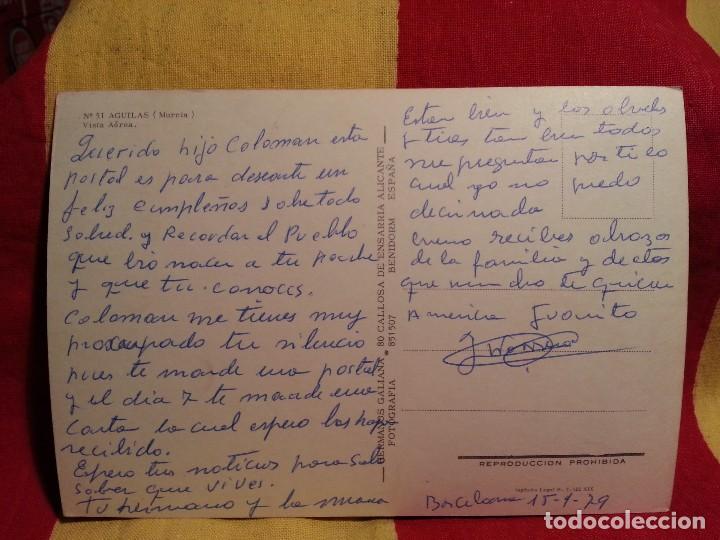 Nº 51 AGUILAS (Murcia)
Vista Aérea.
Querido hijo Coloman esta
postal es para desearte un
feliz cumpleños sobre todo
salud. y Recordar el Pueblo
que bio nacer a tu
y que tu conoces.
Coloman me tienes muy
preocupado tu silencio
pues te mande una postal
y el dia 7 te mande una
Carta la cual espero las
recibido.
Espero tus noticias para
saber que vives.
Tu hermano y la
HERMANOS GALIANA * 80 CALLOSA DE ENSARRIA ALICANTE
FOTOGRAFIA 851507 BENIDORM ESPAÑA
Estan bien y los
y tias tan bien todos
me preguntan por ti lo
cual yo no puedo
decir nada
bueno recibes abrazos
de la familia y de estos
que mucho te quieren
America Juanito
REPRODUCCION PROHIBIDA
Barcelona 15-1-79
todocoleccion.net